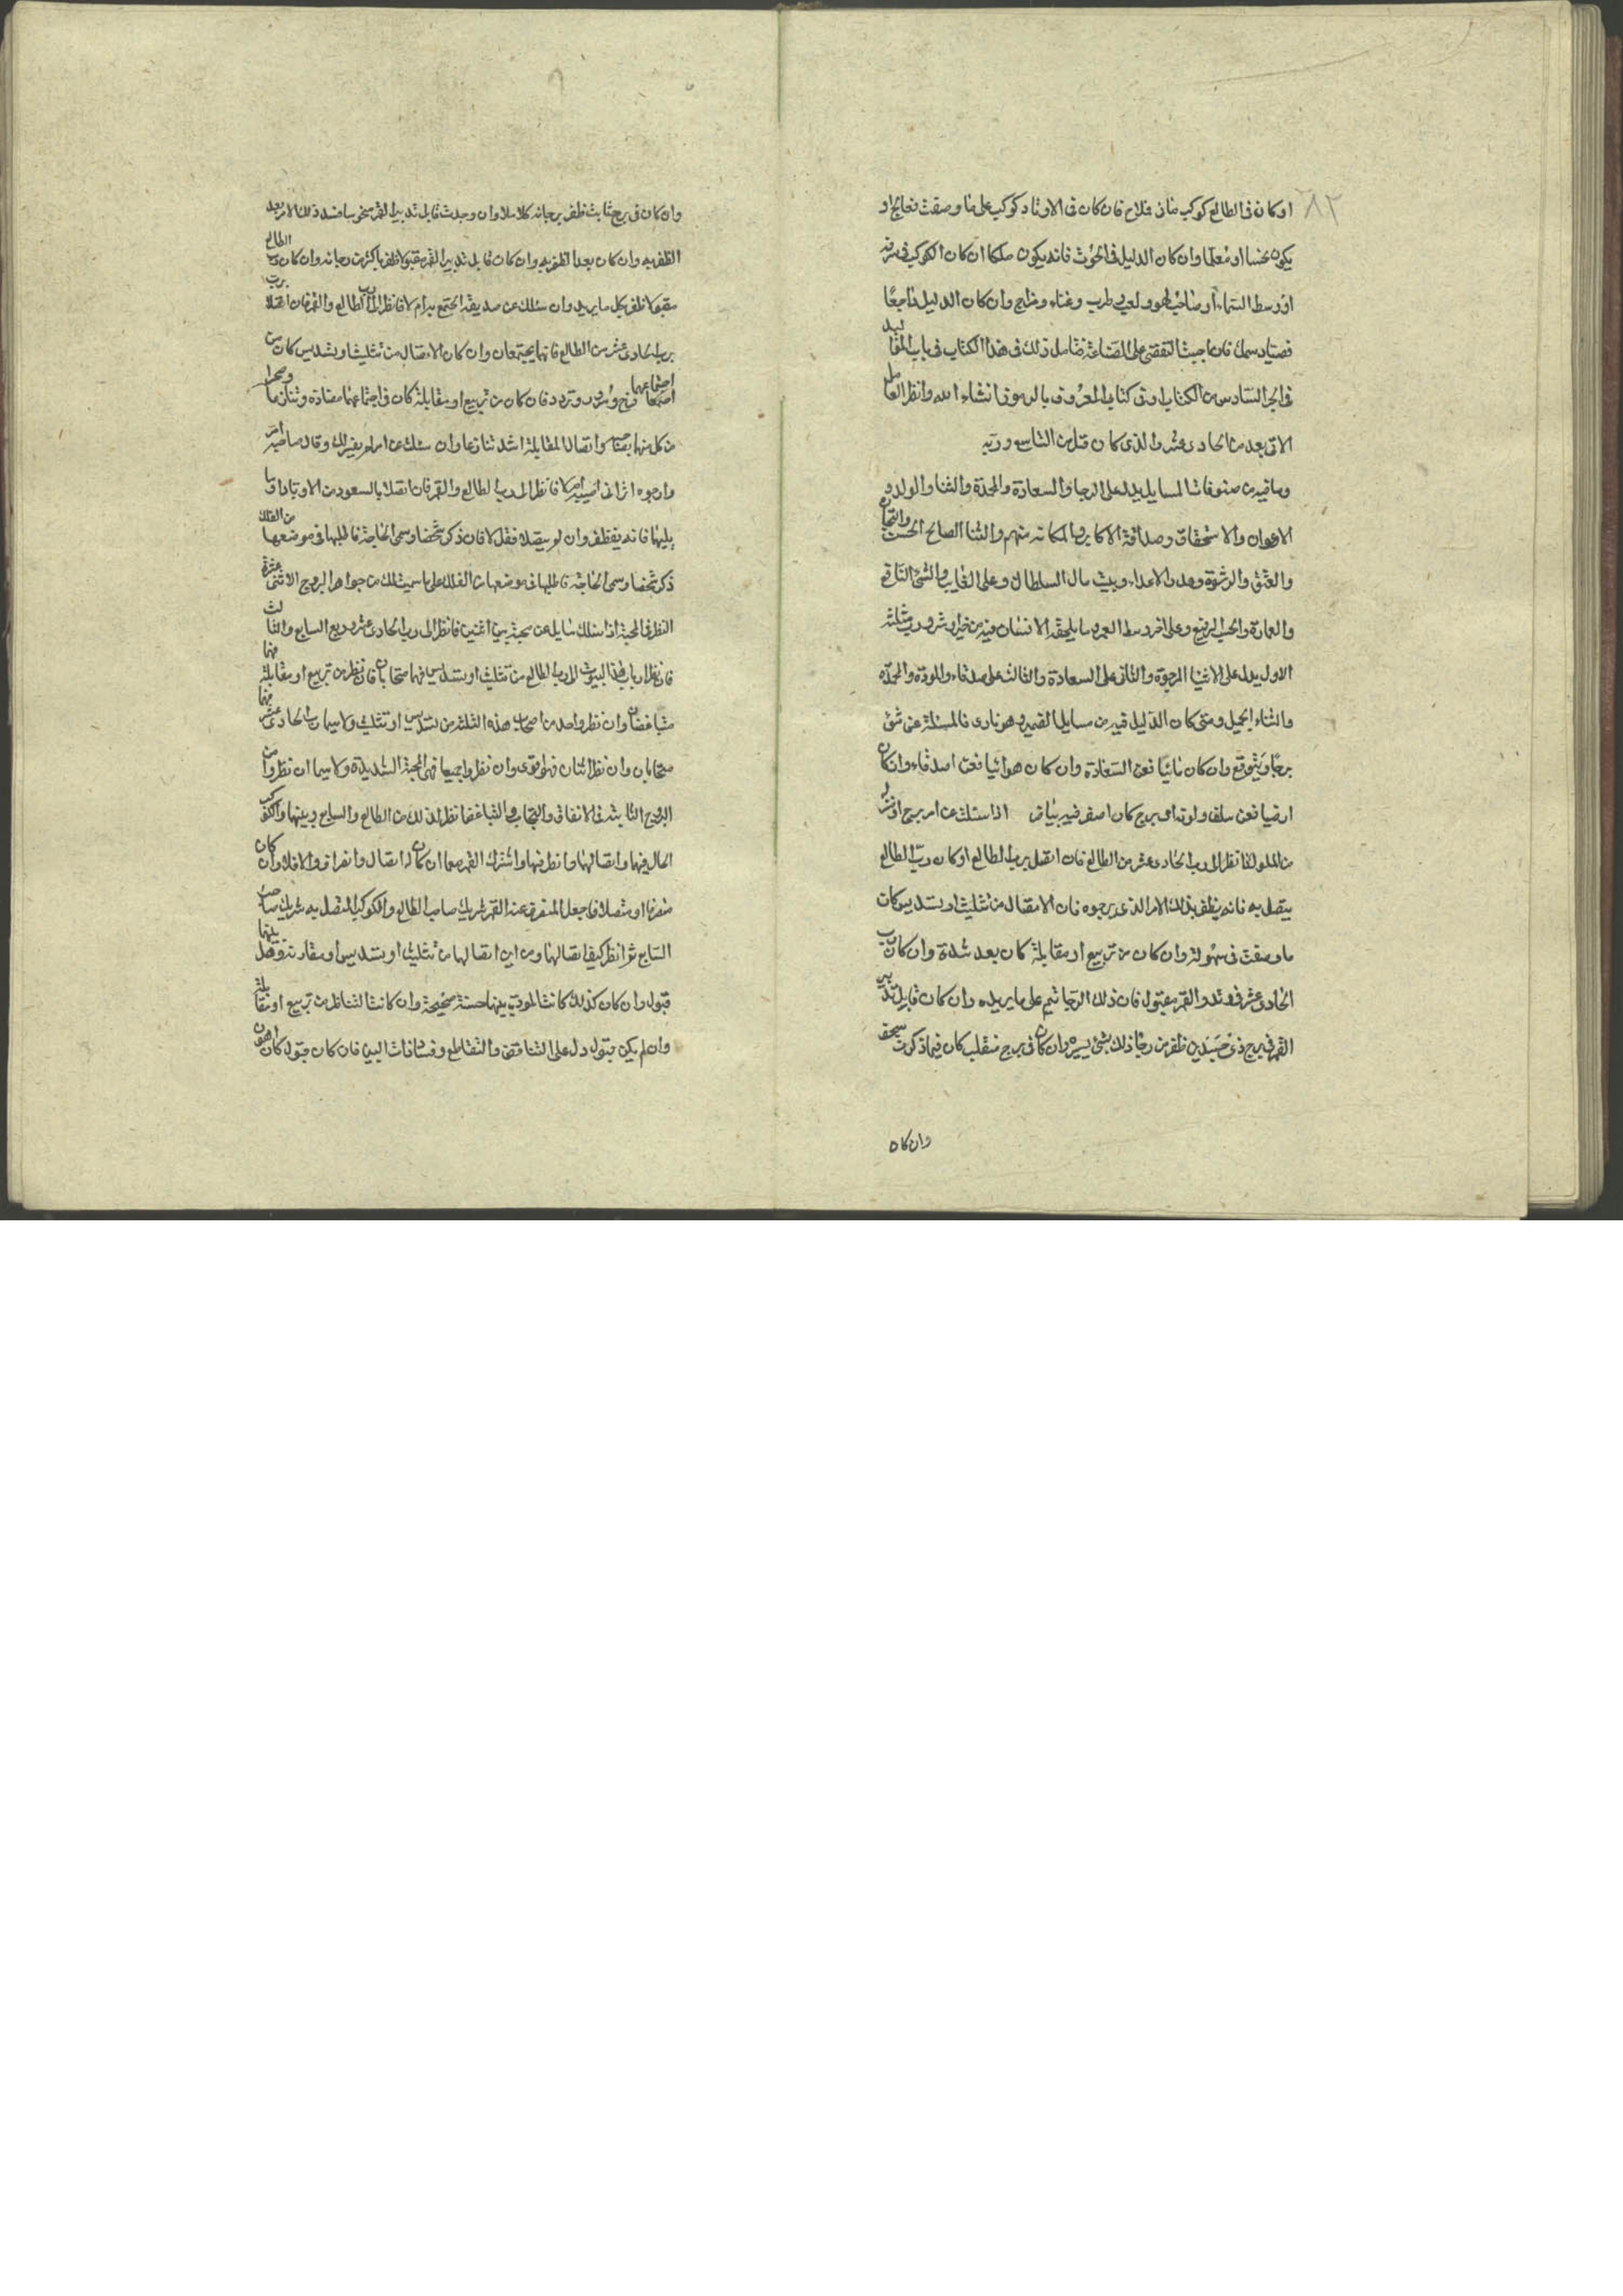 ٨٢
او كان فى الطالع كوكب منافى فلاح فان كان فى الاوتاد كوكب على ما وصفت فعالج او
يكون نخسا او معلما وان كان الدليل فى الحوت فانه يكون ملكا ان كان الكوكب فى شرفه
او وسط السماء او صاحب لهو ولعب وطرب وغناء ومزاج وان كان الدليل راجعا
فصياد سمك فان احببت التقصى على الصناعة فتامل ذلك فى هذا الكتاب فى باب المقا ليد
فى الجز السادس من الكتاب او فى كتاب المعروف بالرموز انشاء الله وانظر العا مل
الاتى بعد من الحادى عشر والذى كان قبل من التاسع وربه
وما فيه من صنوف المسايل يدل على الرجا والسعادة والمحدة والثنا والولد و
الاعوان والاستحقاق وصداقة الاكابر والمكانه منهم والثنا الصالح الحسن والتجا
والعتق والرشوة وعدد الاعداء وبيت مال السلطان وعلى الغايب والشئ الناقع
والعمارة والحسب الرفيع وعلى اخر وسط العمر وما يلحقه الانسان فيه من خير وشر ورب مثلثته
الاول يدل على الاشيا المرجوة والثانى على السعادة والثالث على صدقاء والمودة والمحمدة
والثناء الجميل ومتى كان الدليل فيه من مسايل الضمير وهو نارى فالمسئلة عن شئ
يرجا ويتوقع وان كان مائيا فعن السعادة وان كان هوائيا فعن اصدقاء وان كان
ارضيا فعن سلف ولونه اى برج كان اصفر فيه بياض اذا سئلت عن امر يرجى او شئ
من الملوك فانظر الى رب الحادى عشر من الطالع فان اتصل برب الطالع او كان رب الطالع
يتصل به فانه يظفر بذلك الامر الذى يرجوه فان الاتصال من تثليث او تسديس كان
ما وصفت فى سهولة وان كان من تربيع او مقابلة كان بعد شدة وان كان رب
الحادى عشر فى وتد والقمر مقبول فان ذلك الرجا يتم على ما يريده وان كان قابل تد بير
القمر فى برج ذى جسدين ظفر من رجا ذلك بشئ يسير وان كان فى برج منقلب كان فيما ذكرت سخف
وان كان
وان كان فى برج ثابت ظفر برجائه كلا ملا وان وجدت قابل تدبير القمر منحوسا فسد ذلك الامر بعد
الظفر به وان كان بعد الظفر به وان كان قابل تدبير القمر مقبولا ظفر باكثر من رجائه وان كان رب الطالع
مقبولا ظفر بكل ما يريد وان سئلك عن صديقه ايجتمع به ام لا فانظر الى رب الطالع والقمر فان اتصلا
برب الحادى عشر من الطالع فانهما يجتمعان وان كان الاتصال من تثليث او تسديس كان من
اجتماعهما فرح وسرور وتودد فان كان من تربيع او مقابلة كان فى اجتماعهما مضادة وتنازعا
من كل منهما واتصال المقابلة اشد تنازعا وان سئلت عن امر لم يفسر لك وقال صاحبه امر
وارجوه اترانى اصيبه ام لا فانظر الى رب الطالع والقمر فان اتصلا بالسعود من الاوتاد او ما
يليها فانه يظفر وان لم يتصلا فقل لا فان ذكر شخصا وسمى الحاجة فاطلبها فى موضعها من الفلك
ذكر شخصا وسمى الحاجة فاطلبها فى موضعها من الفلك على ما سميت لك من جواهر البروج الاثنى عشرة
النظر فى المحبة اذا سئلك سايل عن محبة بين اثنين فانظر الى رب الحادى عشر ورب السابع والثا لث
فان نظر ارباب هذا البيوت الى رب الطالع من تثليث او تسديس فهما متحابان فان نظر من تربيع او مقابلة فهما
متباغضان وان نظر واحد من اصحاب هذه الثلثة من تسديس او تثليث ولا سيما رب الحادى عشر فهما
متحابان وان نظر اثنان فهو اقوى وان نظروا جميعا فهى المحبة الشديدة ولا سيما ان نظروا من
البروج الثابتة فى الاتفاق والتحاب والتباغض انظر لذلك من الطالع والسابع وربيهما والكو كب
الحال فيهما واتصالهما وانظر فيهما واشرك القمر معهما ان كان له اتصال وانفراق والا فلا وان كان
منصرفا او متصلا فاجعل المنصرف عنه القمر شريك صاحب الطالع والكوكب المتصل به شريك صا حب
السابع ثم انظر كيف اتصالهما ومن اين اتصالهما من تثليث او تسديس او مقارنة وهل بينهما
قبول وان كان كذلك كانت المودة بينهما حسنة صحيحة وان كانت التناظر من تربيع او مقا بلة
وان لم يكن قبول دل على التنافق والتقاطع وفساد ذات البين فان كان قبول كان اهون